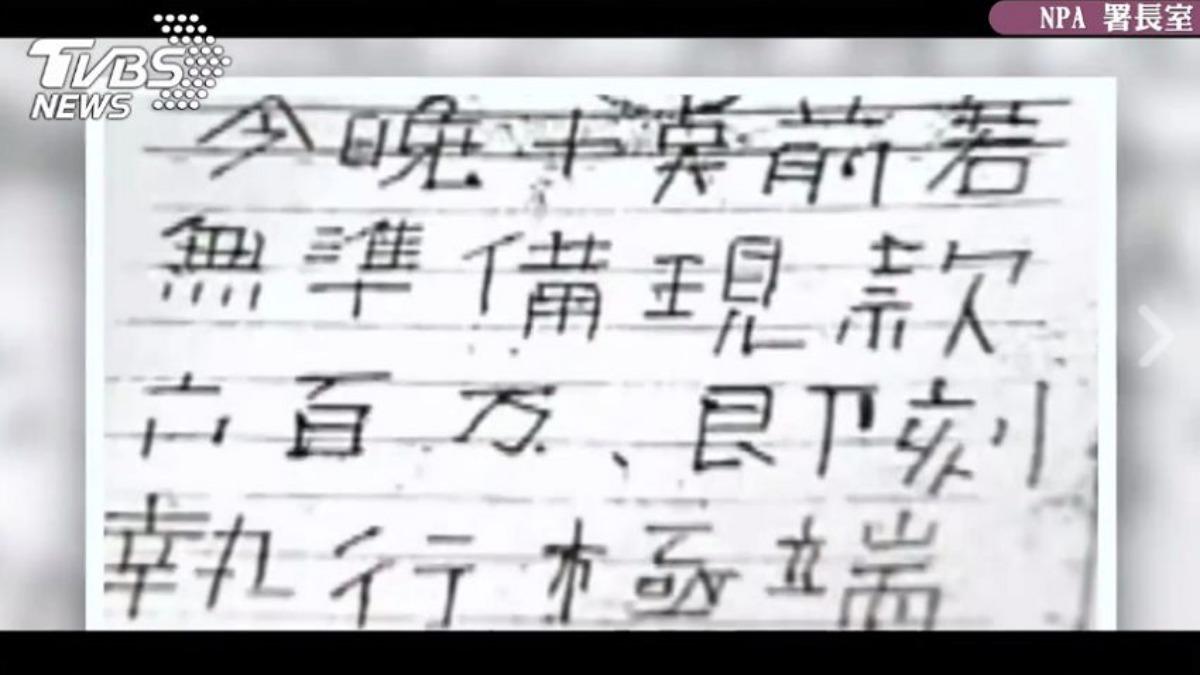 NPA 署長室
TVBS
NEWS
今晚十奌前若
無準備現款
六百万、即刻
執行極端